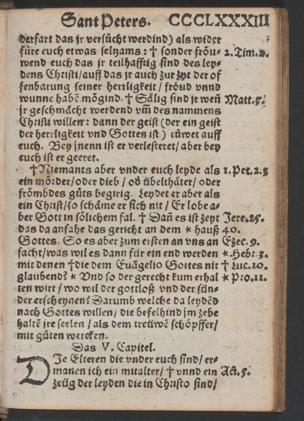 Sant Peters. CCCLXXXIII
derfart das jr versůcht werdind) als wider
füre euch etwas seltzams: † sonder fröu- 2. Tim. 2.
wend euch das jr teilhafftig sind des ley-
dens Christi/ auff das jr auch zur zyt der of
fenbarung seiner herrligkeit/ fröud vnnd
wunne habē mögind. † Sälig sind jr weñ Matt. 5.
jr geschmächt werdend vm̄ des nammens
Christi willen: dann der geist (der ein geist
der herrligkeit vnd Gottes ist) rüwet auff
euch. Bey jnenn ist er verlesteret/ aber bey
euch ist er geeret.
†Niemants aber vnder euch leyde als 1. Pet. 2. 3
ein mörder/ oder dieb/ oď übelthäter/ oder
frömbdes gůts begirig. Leydet er aber als
ein Christ/ so schäme er sich nit/ Er lobe a-
ber Gott in sölichem fal. † Dañ es ist zeyt Jere. 25.
das da anfahe das gericht an dem * hauß 40.
Gottes. So es aber zum ersten an vns an Ezec. 9.
facht/ was wil es dann für ein end werden * Hebr. 3.
mit denen † die dem Euāgelio Gottes nit † Luc. 10.
glaubend? * Vnd so der gerecht kum erhal * Pro. 11.
ten wirt/ wo wil der gottloß vnd der sün-
der erscheynen? Darumb welche da leydēd
nach Gottes willen/ die befelhind jm
haltē jre seelen/ als dem treüwē schöpffer/
mit gůten wercken.
Das V. Capitel.
DJe Elteren die vnder euch sind/ er-
manen ich ein mitalter/ † vnnd ein Act. 5.
zeüg der leyden die in Christo sind/